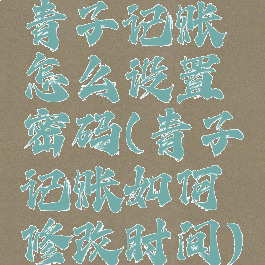 青子记账
怎么设置
密码(青子
记账如何
修改时间)